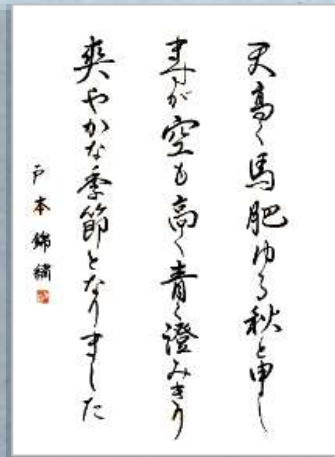 天高く馬肥ゆる秋と申し
ますが空も高く青く澄みきり
爽やかな季節となりました
戸本錦繍